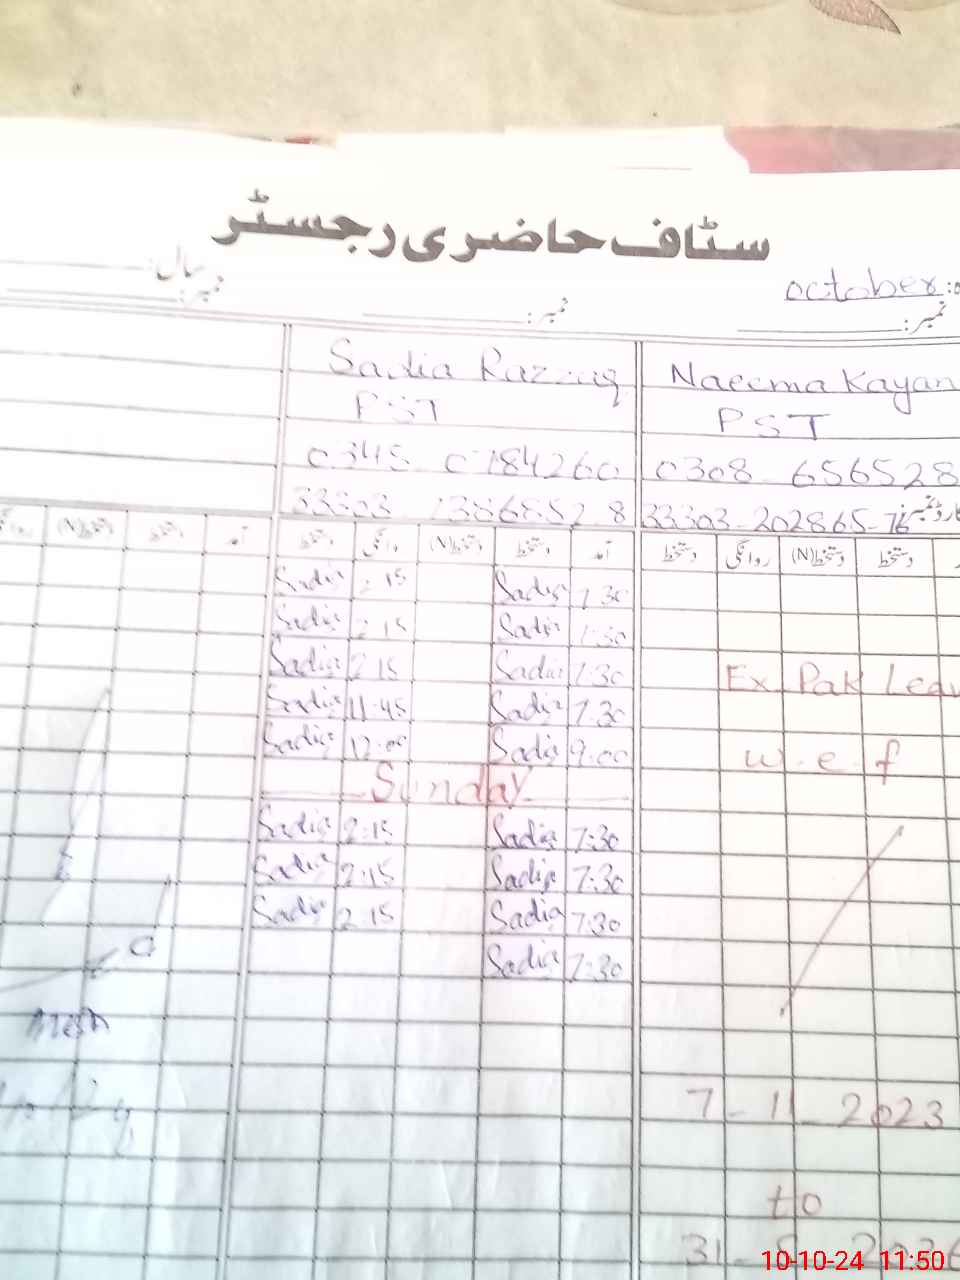 سٹاف حاضری رجسٹر
october
سال:
نمبر:
نمبر:
نمبر:
Sadia Razzaq
Naeema Kayan
PST
PST
0345-0784260
0308-656528
33303-1386852-8
33303-202865-76
آمد
دستخط
دستخط(N)
روانگی
دستخط
آمد
دستخط
دستخط(N)
روانگی
دستخط
Sadia 2:15 Sadia 7:30
Sadia 2:15 Sadia 7:30
Sadia 2:15 Sadia 7:30
Sadia 11:45 Sadia 7:30
Sadia 12:00 Sadia 9:00
Sunday
Sadia 2:15 Sadia 7:30
Sadia 2:15 Sadia 7:30
Sadia 2:15 Sadia 7:30
Sadia 7:30
Ex Pak Leav
w.e.f
7-11-2023
to
31
10-10-24 11:50